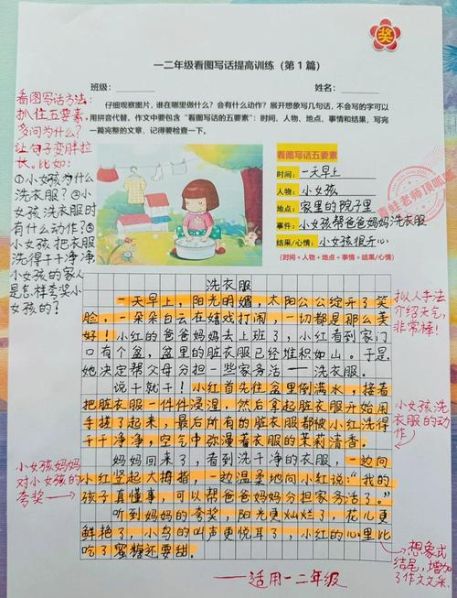 奖
一二年级看图写话提高训练（第1篇）
班级：
姓名：
仔细观察图片，谁在哪里做什么？会有什么动作？展开想象写几句话，不会写的字可以
用拼音代替。作文中要包含“看图写话的五要素”：时间、人物、地点、事情和结果，写完
一篇完整的文章，记得要检查一下。
看图写话方法：
扒住五要素，
多问为什么？
让句子变胖拉
长。比如：
①小女孩为什么
洗衣服？②小
女孩洗衣服时
有什么动作？③
小女孩把衣服
洗得干干净净，
小女孩的家人
是怎样夸奖小
女孩的？
看图写话五要素
时间：一天早上
人物：小女孩
地点：家里的院子里
事件：小女孩帮爸爸妈妈洗衣服
结果/心情：小女孩很开心
（时间＋人物＋地点＋事情＋结果/心情）
洗衣服
一天早上，阳光明媚，太阳公公绽开了笑
脸，一朵朵白云在嬉戏打闹，一切都是那么美
好！小红的爸爸妈妈去上班了，小红看到家门
口有个盆，盆里的脏衣服已经堆积如山。于是
她决定帮父母分担一些家务活——洗衣服。
说干就干！小红首先往盆里倒满水，接着
把脏衣服一件件浸湿，然后拿起脏衣服开始用
手搓了起来，最后所有的脏衣服都被小红洗得
干干净净，空气中弥漫着衣服的茉莉清香。
妈妈回来了，看到洗干净的衣服，一边向
小红竖起大拇指，一边温柔地向小红说：“我的
孩子真懂事，可以帮爸爸妈妈分担家务活了。”
听到妈妈的夸奖，阳光更灿烂了，花儿更
鲜艳了，小鸟的叫声更悦耳了，小红的心里比
吃了蜜糖还要甜。
拟人手法
介绍天气，
非常棒！
小女孩洗
衣服的动
作
小女孩妈妈
对小女孩的
夸奖
想象式
结尾，增加
了作文文采
——适用一二年级